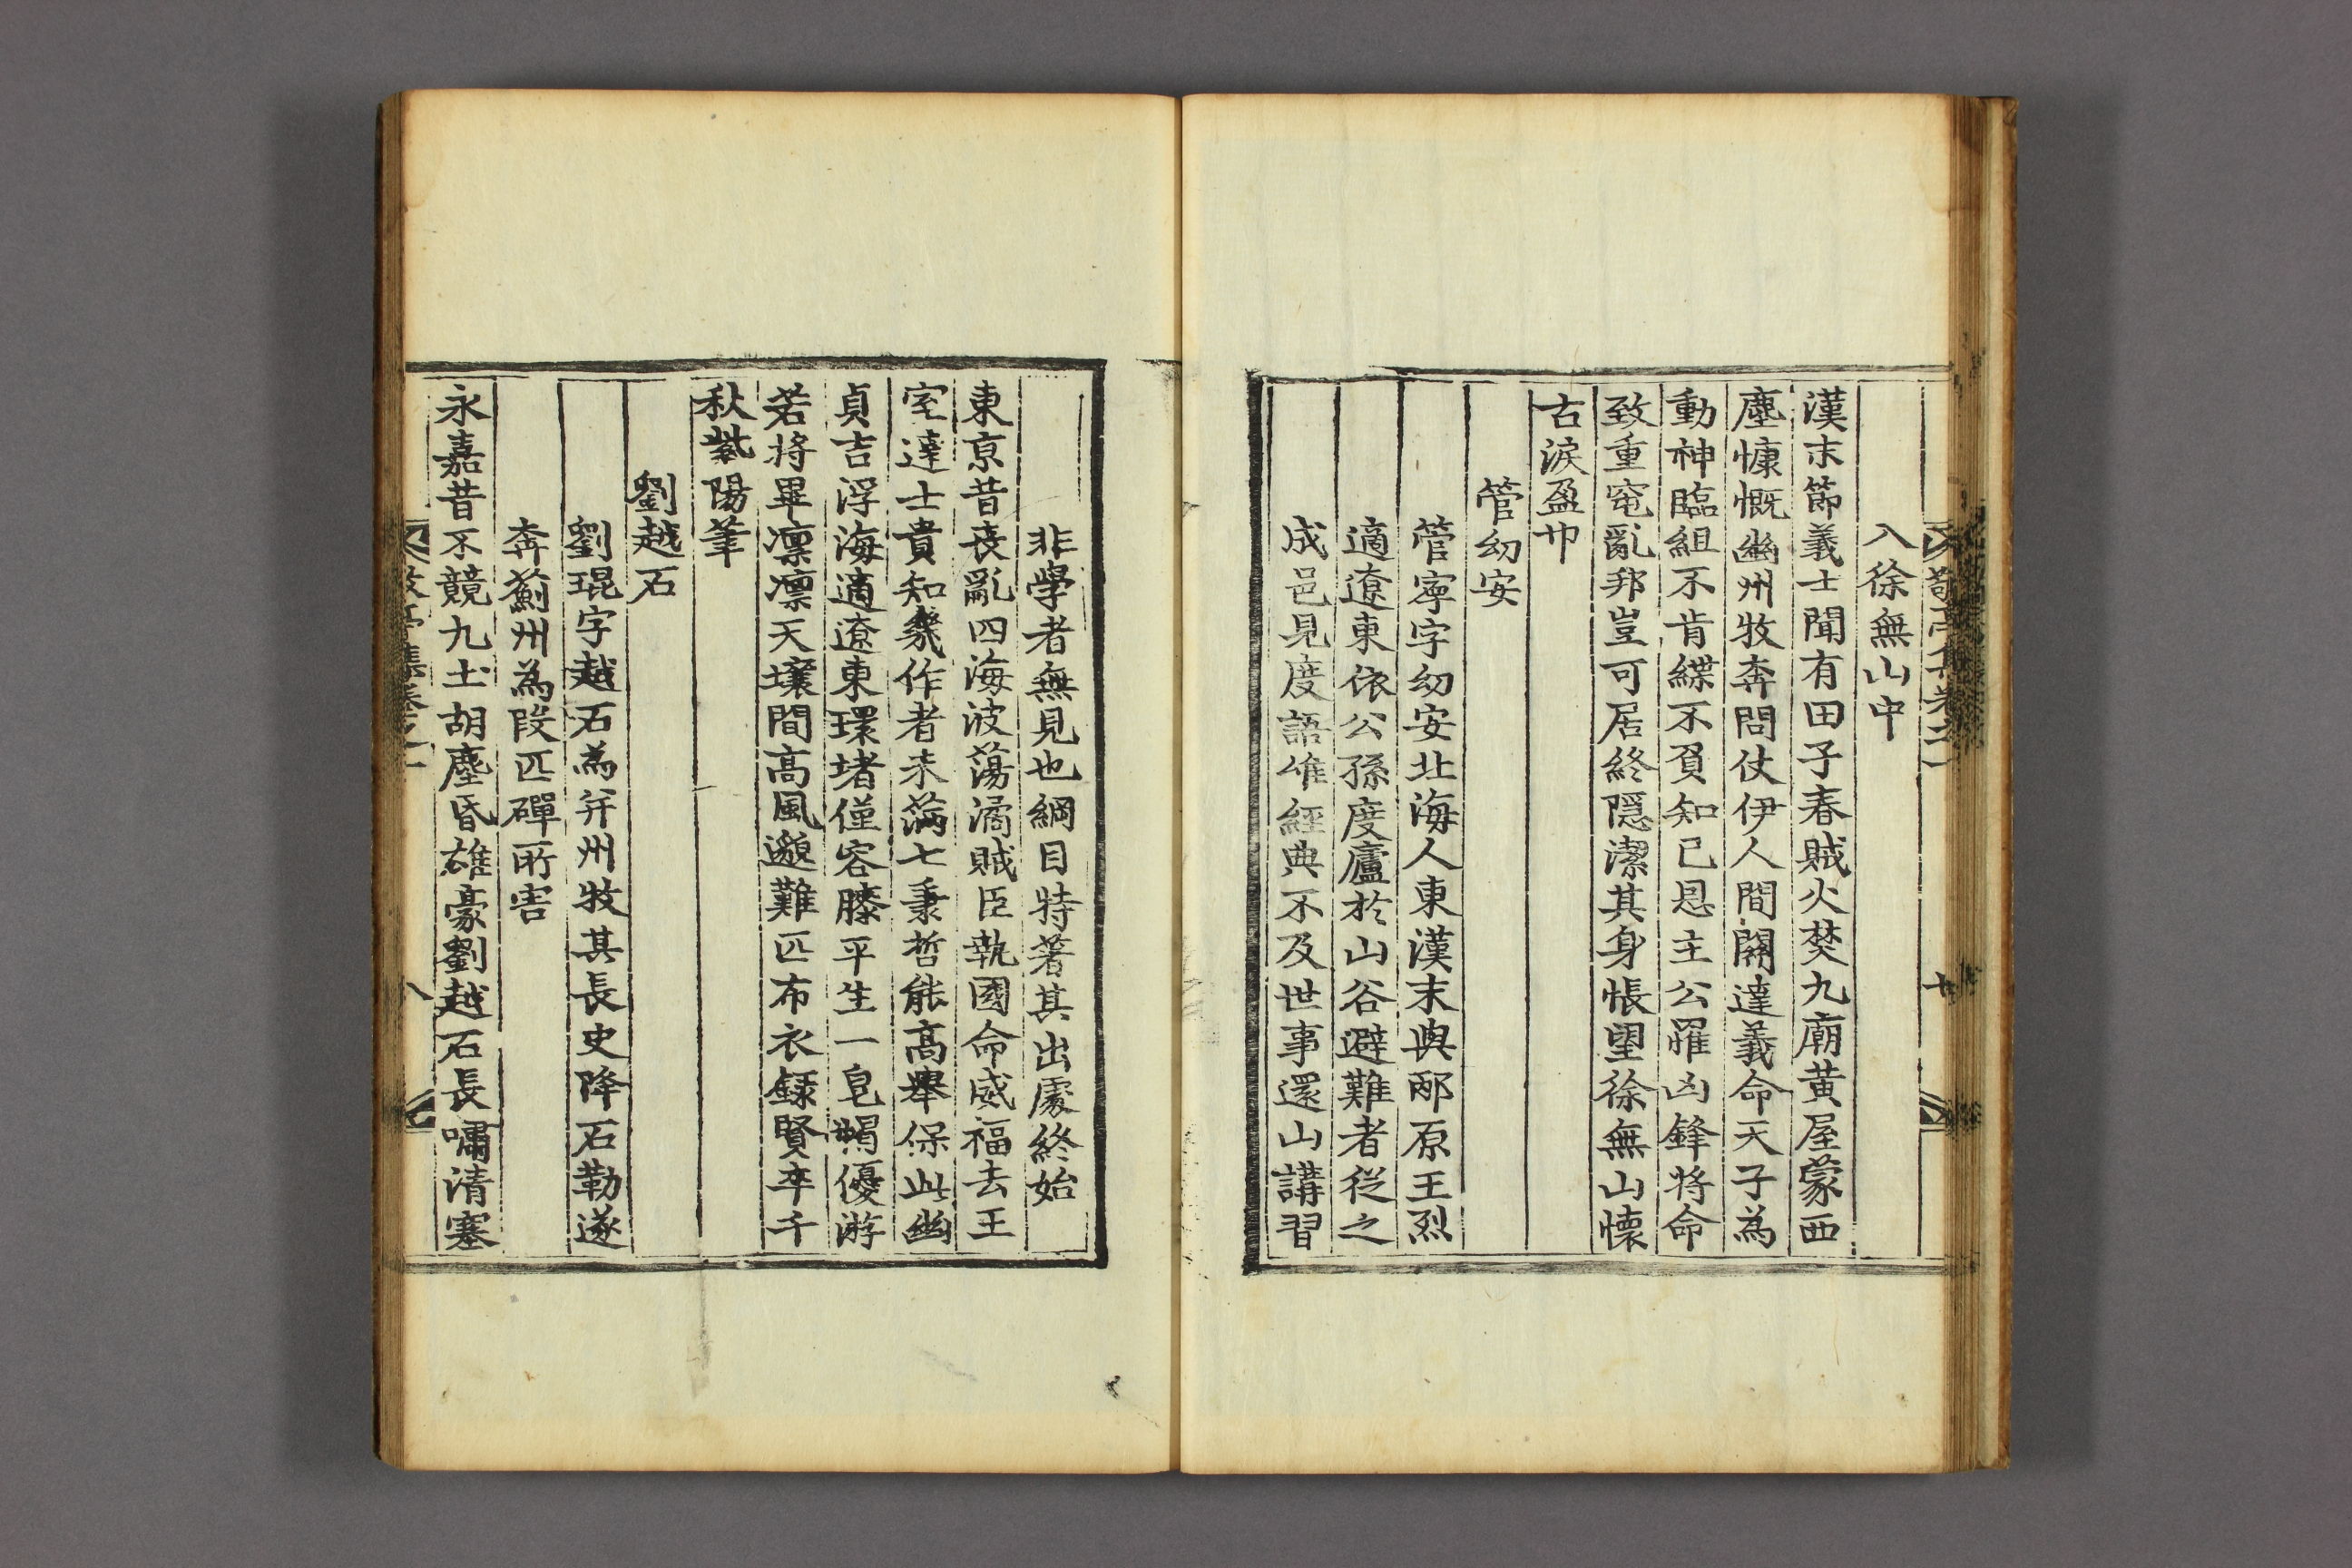 入徐無山中
漢末節義士聞有田子春賊火焚九廟黃屋蒙西
塵慷慨幽州牧奔問仗伊人間關達義命天子為
動神臨組不肯緤不負知己恩主公罹凶鋒將命
致重寃亂邦豈可居終隱潔其身悵望徐無山懷
古淚盈巾
管幼安
管寧字幼安北海人東漢末與邴原王烈
適遼東依公孫度廬於山谷避難者從之
成邑見度語唯經典不及世事還山講習
非學者無見也綱目特著其出處終始
東京昔喪亂四海波蕩潏賊臣執國命威福去王
室達士貴知幾作者未滿七秉哲能高舉保此幽
貞吉浮海適遼東環堵僅容膝平生一皂㡌優游
若將畢凛凛天壤間高風邈難匹布衣録賢卒千
秋紫陽筆
劉越石
劉琨字越石為并州牧其長史降石勒遂
奔薊州為段匹磾所害
永嘉昔不競九土胡塵昏雄豪劉越石長嘯清塞